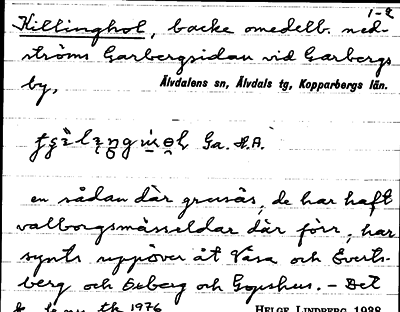 1-2
Killinghol, backe omedelb. ned-
ströms Garbergsidan vid Garbergs
by, Älvdalens sn, Älvdals tg, Kopparbergs län.
Ga. H.A.
en sådan där grusås, de har haft
valborgsmässeldar där förr, har
synts uppöver åt Vasa och Everts-
berg och Åsberg och Gopshus. - Det
1976 HELGE LINDBERG 1938